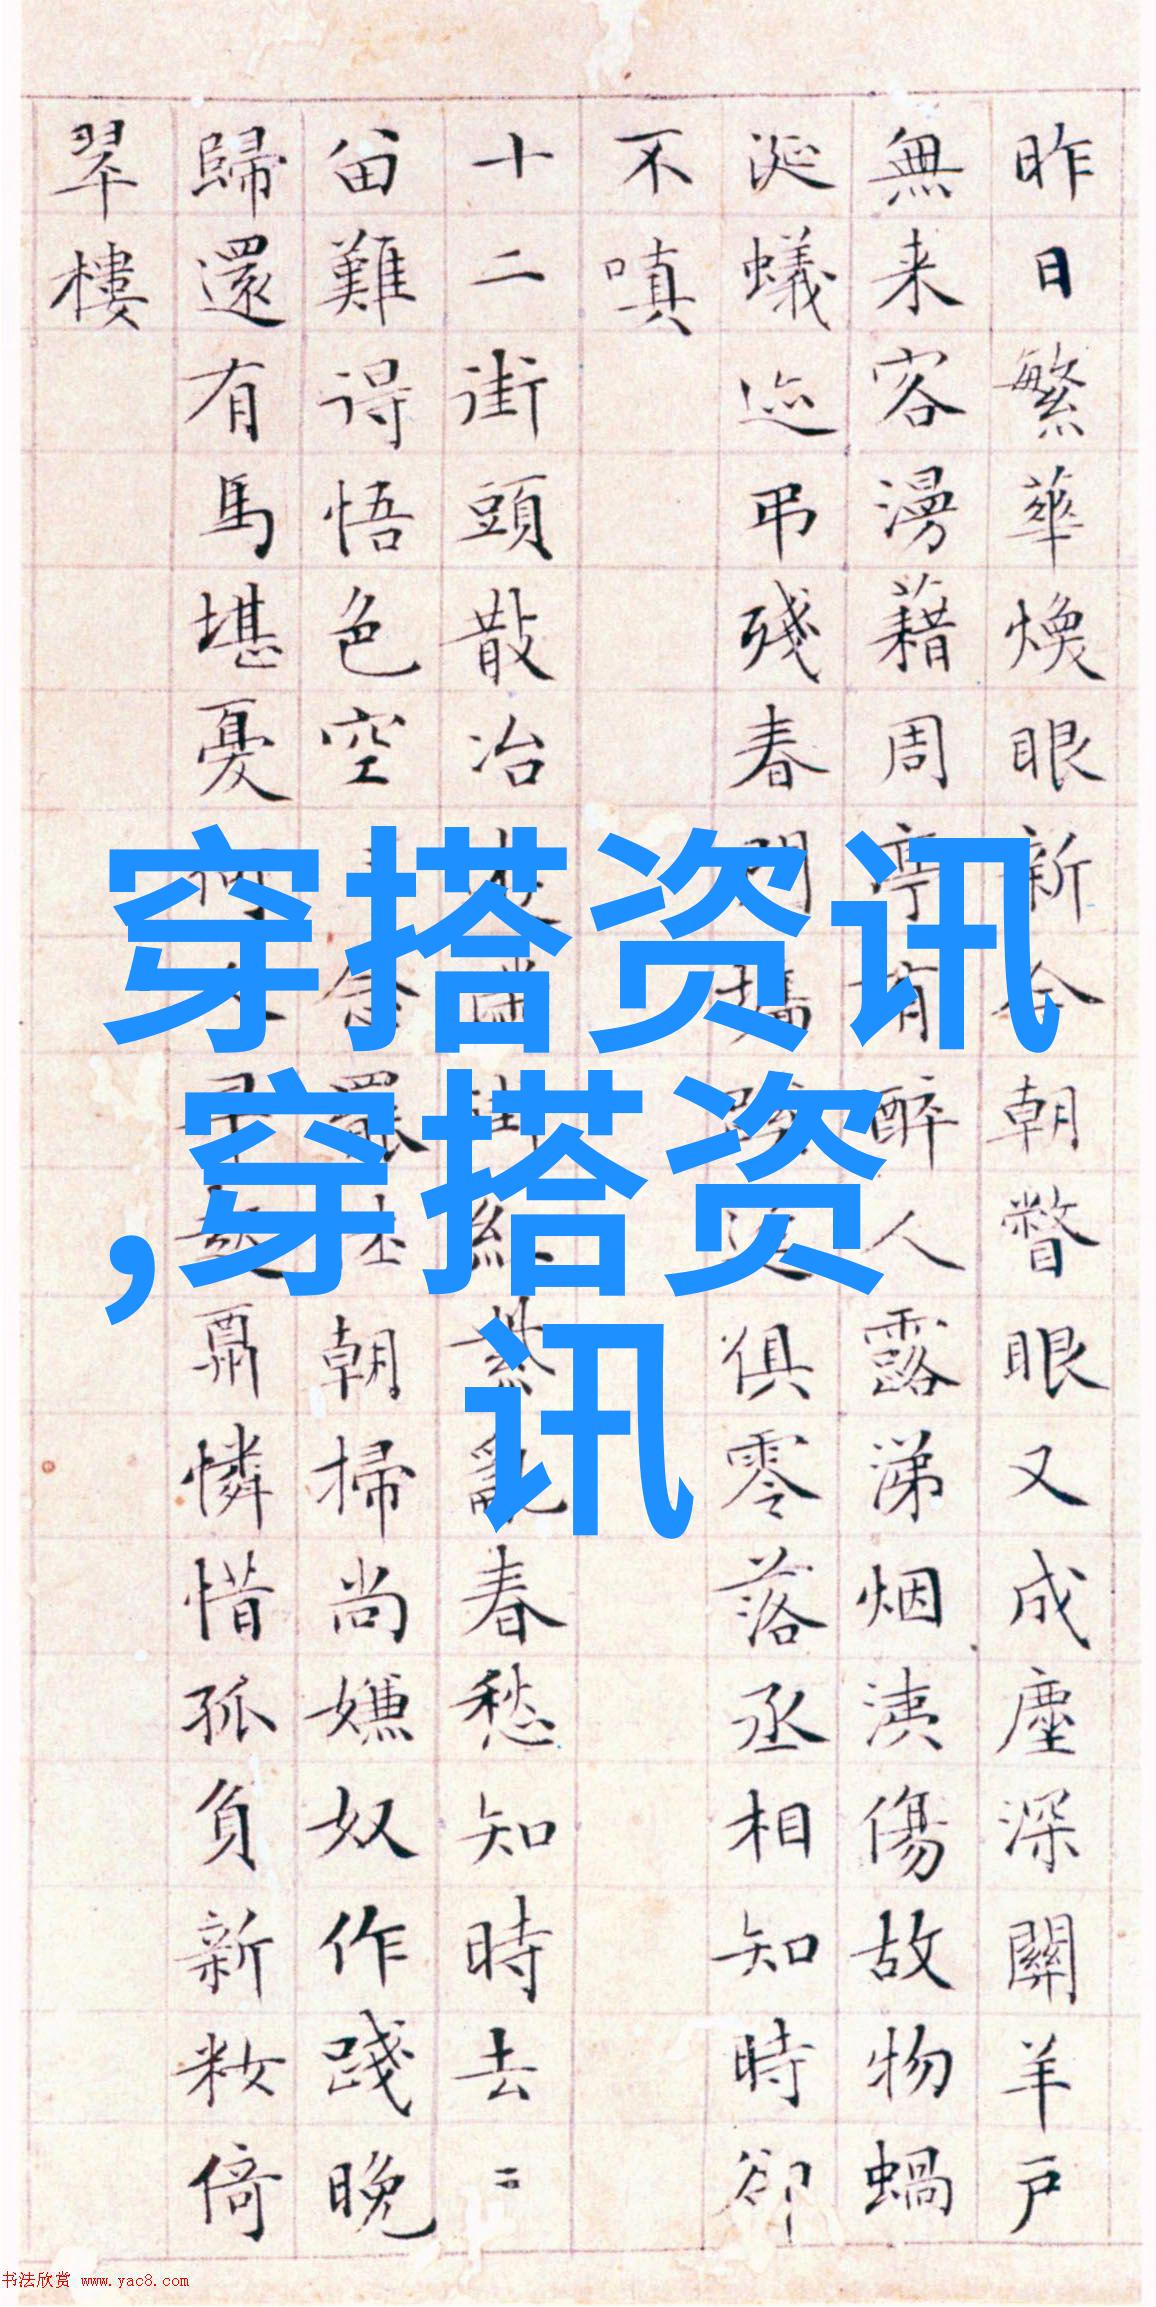 昨日繁華煥眼新今朝瞥眼又成塵深關羊戶
無来客漫藉周亭有醉人露涕烟洟傷故物蝸
涎蟻迹弔殘春俱零落丞相知時卻
不嗔
十二街頭散冶紅紫亂春愁知時去〻
留難得悟色空念朝掃尚嫌奴作踐晚
歸還有馬堪憂憐惜孤負新妝倚
翠樓
穿搭资讯
,穿搭资
讯
书法欣赏 www.yac8.com